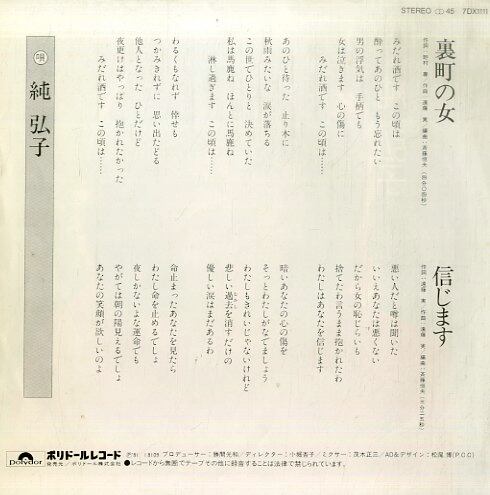 STEREO 45 7DX1111
裏町の女
作詞・野村 薫/作曲・遠藤 実/編曲・斉藤恒夫
みだれ酒です この頃は
酔ってあのひと もう忘れたい
男の浮気は 手柄でも
女は泣きます 心の傷に
みだれ酒です この頃は……
あのひと待った 止り木に
秋雨みたいな 涙が落ちる
この世でひとりと 決めていた
私は馬鹿ね ほんとに馬鹿ね
淋し過ぎます この頃は……
わるくもなれず 倖せも
つかみきれずに 思い出たどる
他人となった ひとだけど
夜更けはやっぱり 抱かれたかった
みだれ酒です この頃は……
信じます
作詞・遠藤 実/作曲・遠藤 実/編曲・斉藤恒夫
悪い人だと噂は聞いた
いいえあなたは悪くない
だから女の恥じらいも
捨てたわ言うまま抱かれたわ
わたしはあなたを信じます
暗いあなたの心の傷を
そっとわたしがなでましょう
わたしもきれいじゃないけれど
悲しい過去を消すだけの
優しい涙はまだあるわ
命止まったあなたを見たら
わたし命を止めるでしょ
夜しかないよな運命でも
やがては朝の陽見えるでしょ
あなたの笑顔が欲しいのよ
唄
純 弘子
Polydor
ポリドールレコード
発売元/ポリドール株式会社
プロデューサー:勝間光和/ディレクター:小堀杏子/ミクサー:茂木正三/AD&デザイン:松尾 博(P.C.C)
●レコードから無断でテープその他に録音することは法律で禁じられています。